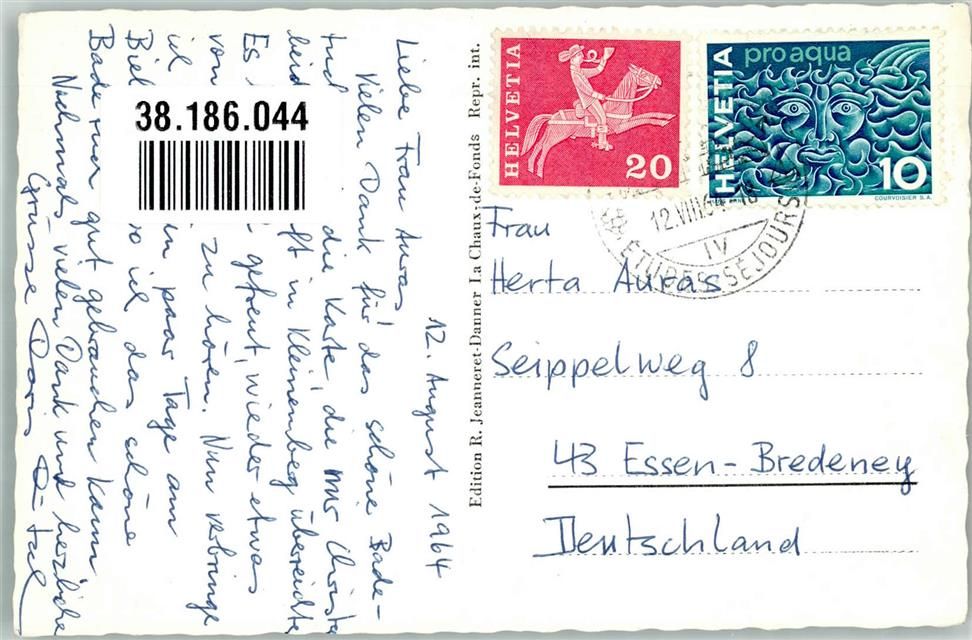 12. August 1964
Liebe Frau Auras
Vielen Dank für das schöne Bade-
tuch die Karte, die mir Christa
beid in Kleinenberg überreichte
Es gefreut, wieder etwas
von zu hören. Nun verbringe
ich ein paar Tage am
Biel so ich das schöne
Badetuch gut gebrauchen kann.
Nochmals vielen Dank und herzliche
Grüsse Doris
38.186.044
Edition R. Jeanneret-Danner La Chaux-de-Fonds Repr. int.
HELVETIA
20
HELVETIA
pro aqua
10
COURVOISIER S.A.
12.VIII.64-18
IV
ETUDES-SÉJOURS
Frau
Herta Auras
Seippelweg 8
43 Essen-Bredeney
Deutschland